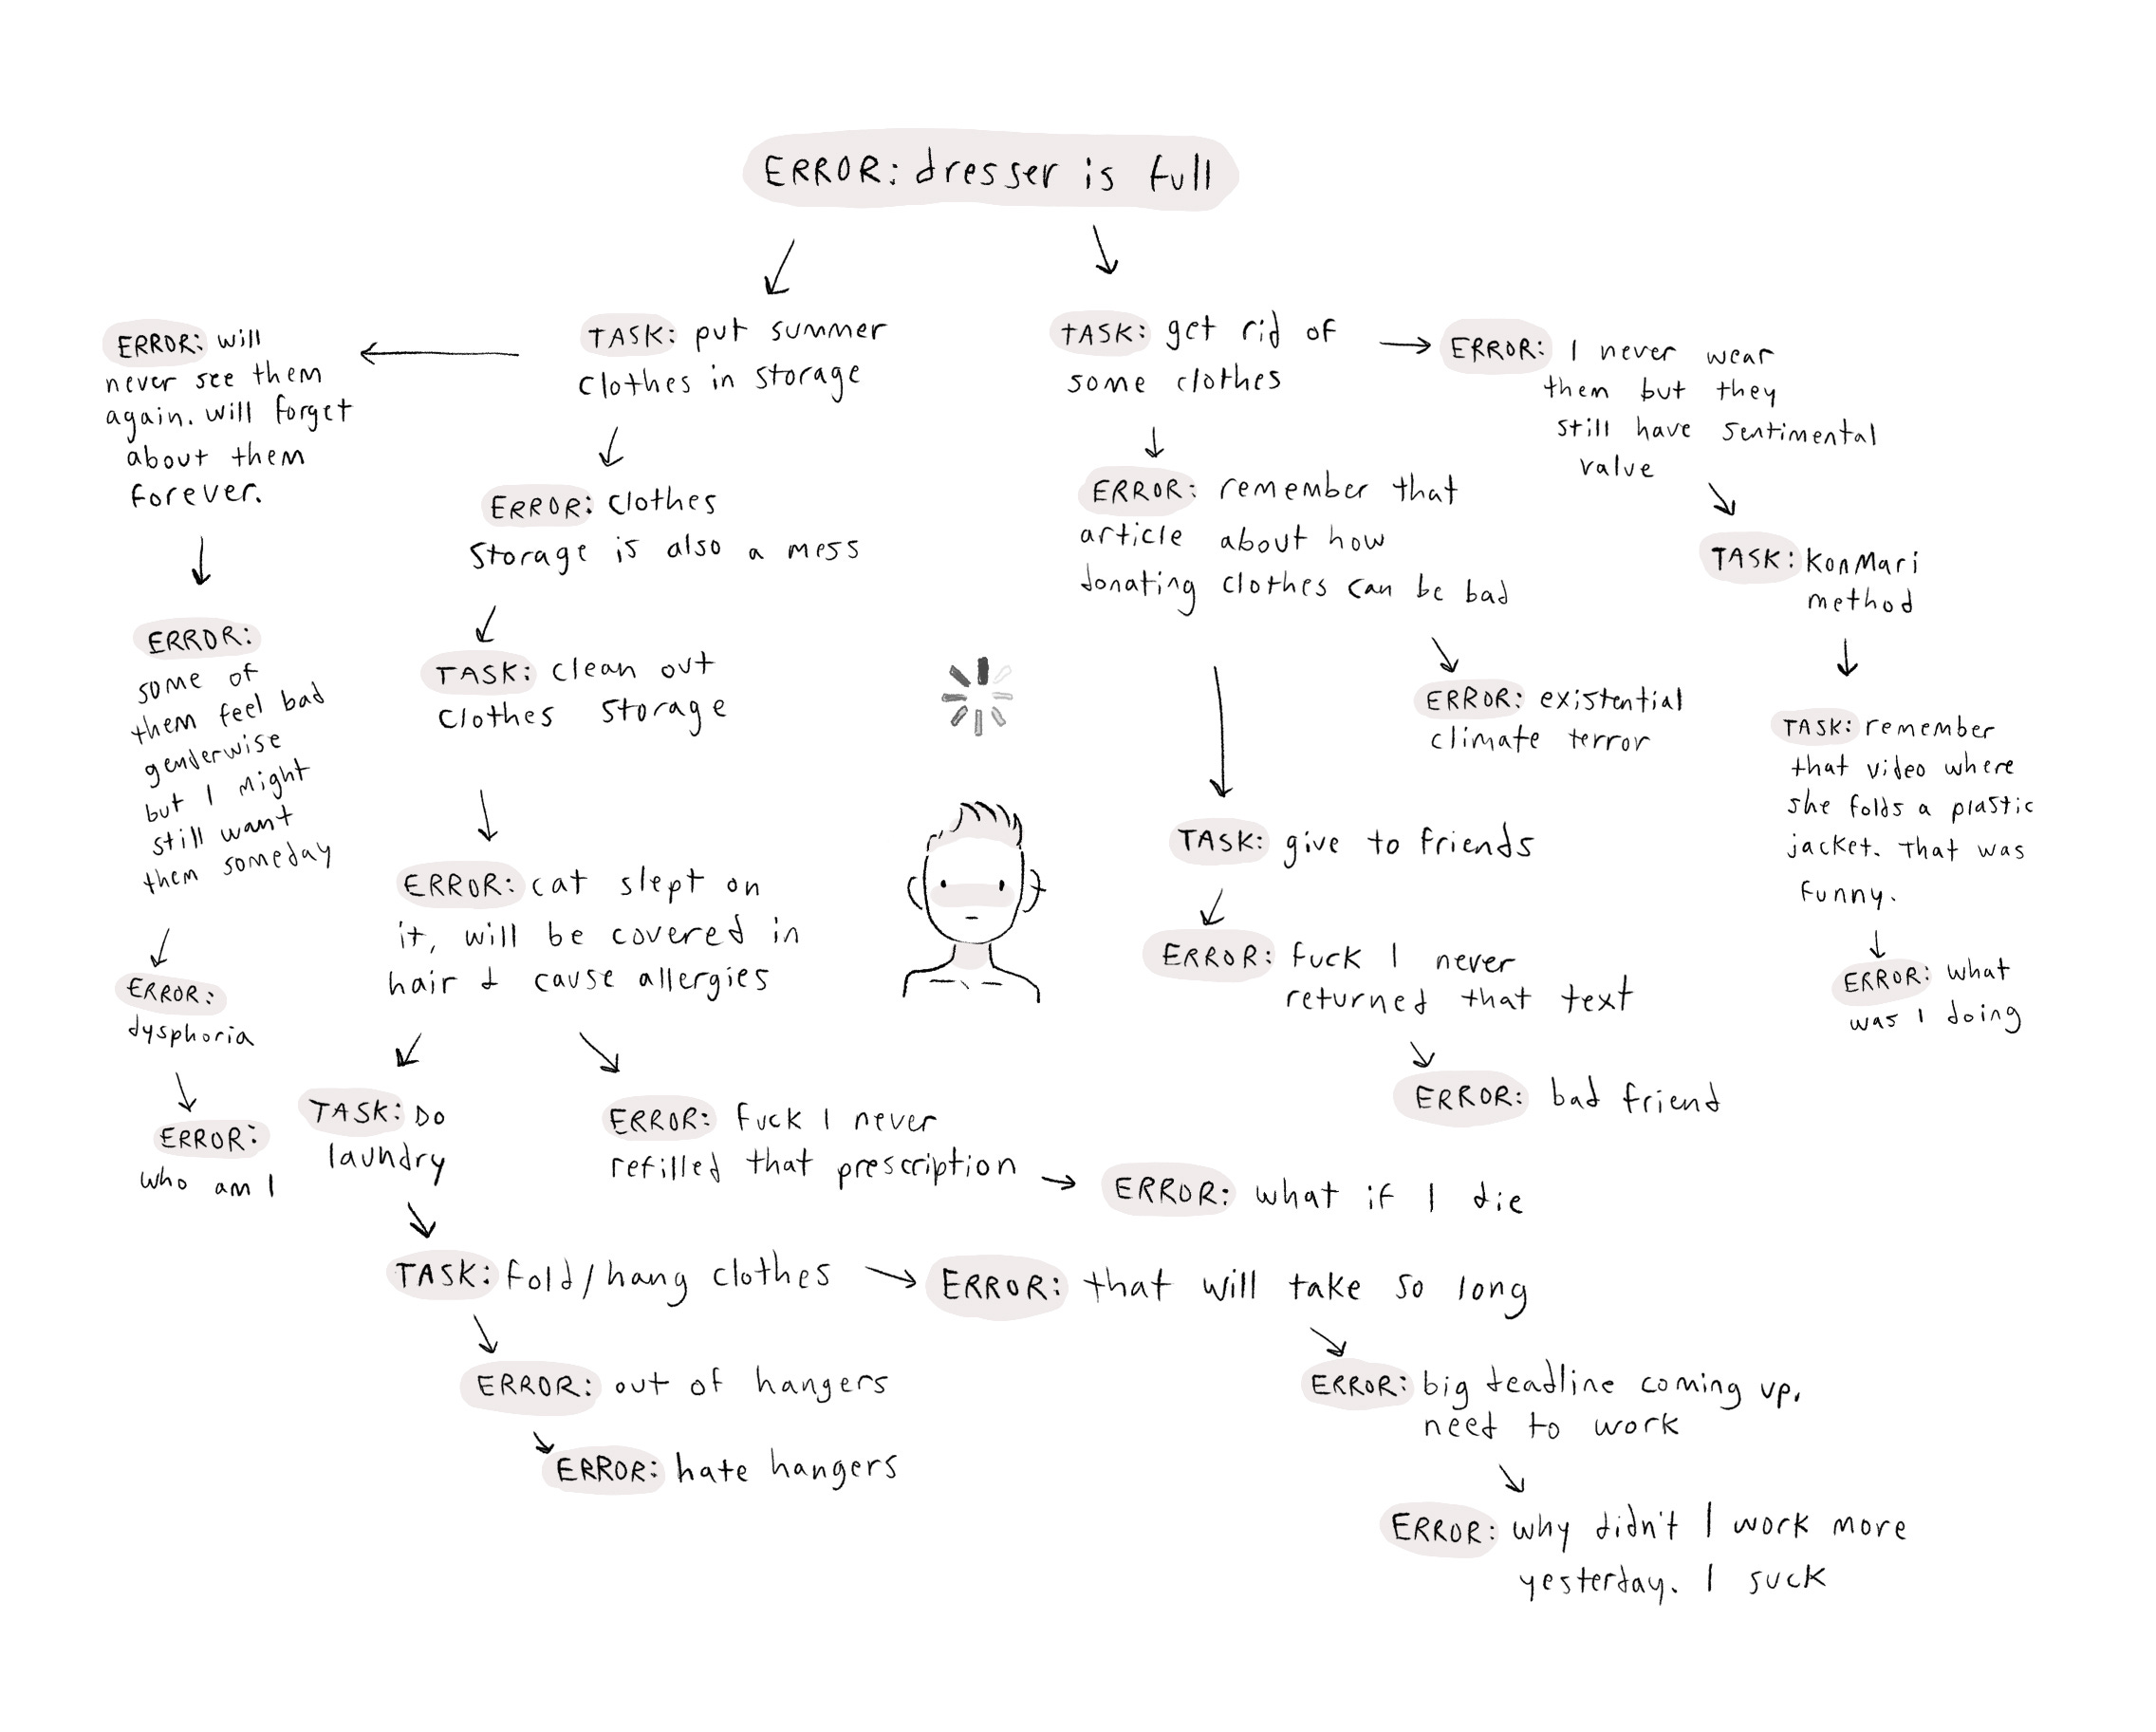 ERROR: dresser is full
ERROR: will
never see them
again. will forget
about them
forever.
ERROR:
some of
them feel bad
genderwise
but I might
still want
them someday
ERROR:
dysphoria
ERROR:
who am I
TASK: put summer
clothes in storage
ERROR: clothes
storage is also a mess
TASK: clean out
clothes storage
ERROR: cat slept on
it, will be covered in
hair & cause allergies
TASK: DO
laundry
ERROR: fuck I never
refilled that prescription
ERROR: what if I die
TASK: fold/hang clothes
ERROR: that will take so long
ERROR: out of hangers
ERROR: hate hangers
ERROR: big deadline coming up,
need to work
ERROR: why didn't I work more
yesterday. I suck
TASK: get rid of
some clothes
ERROR: remember that
article about how
donating clothes can be bad
ERROR: existential
climate terror
TASK: give to friends
ERROR: fuck I never
returned that text
ERROR: bad friend
ERROR: I never wear
them but they
still have sentimental
value
TASK: KonMari
method
TASK: remember
that video where
she folds a plastic
jacket. That was
funny.
ERROR: what
was I doing